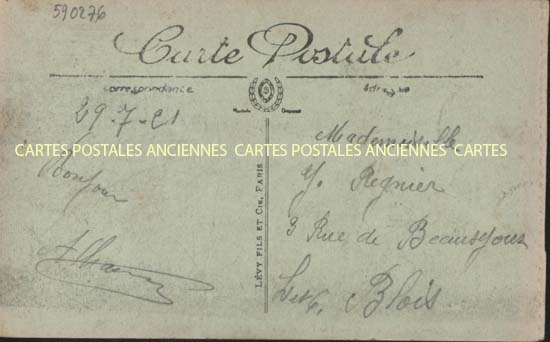 590276
Carte Postale
Correspondance
29-7-21
Bonjour
LÉVY FILS ET CIE, PARIS
Mademoiselle
Y. Regnier
3 Rue de Beauséjour
Blois
CARTES POSTALES ANCIENNES CARTES POSTALES ANCIENNES CARTES